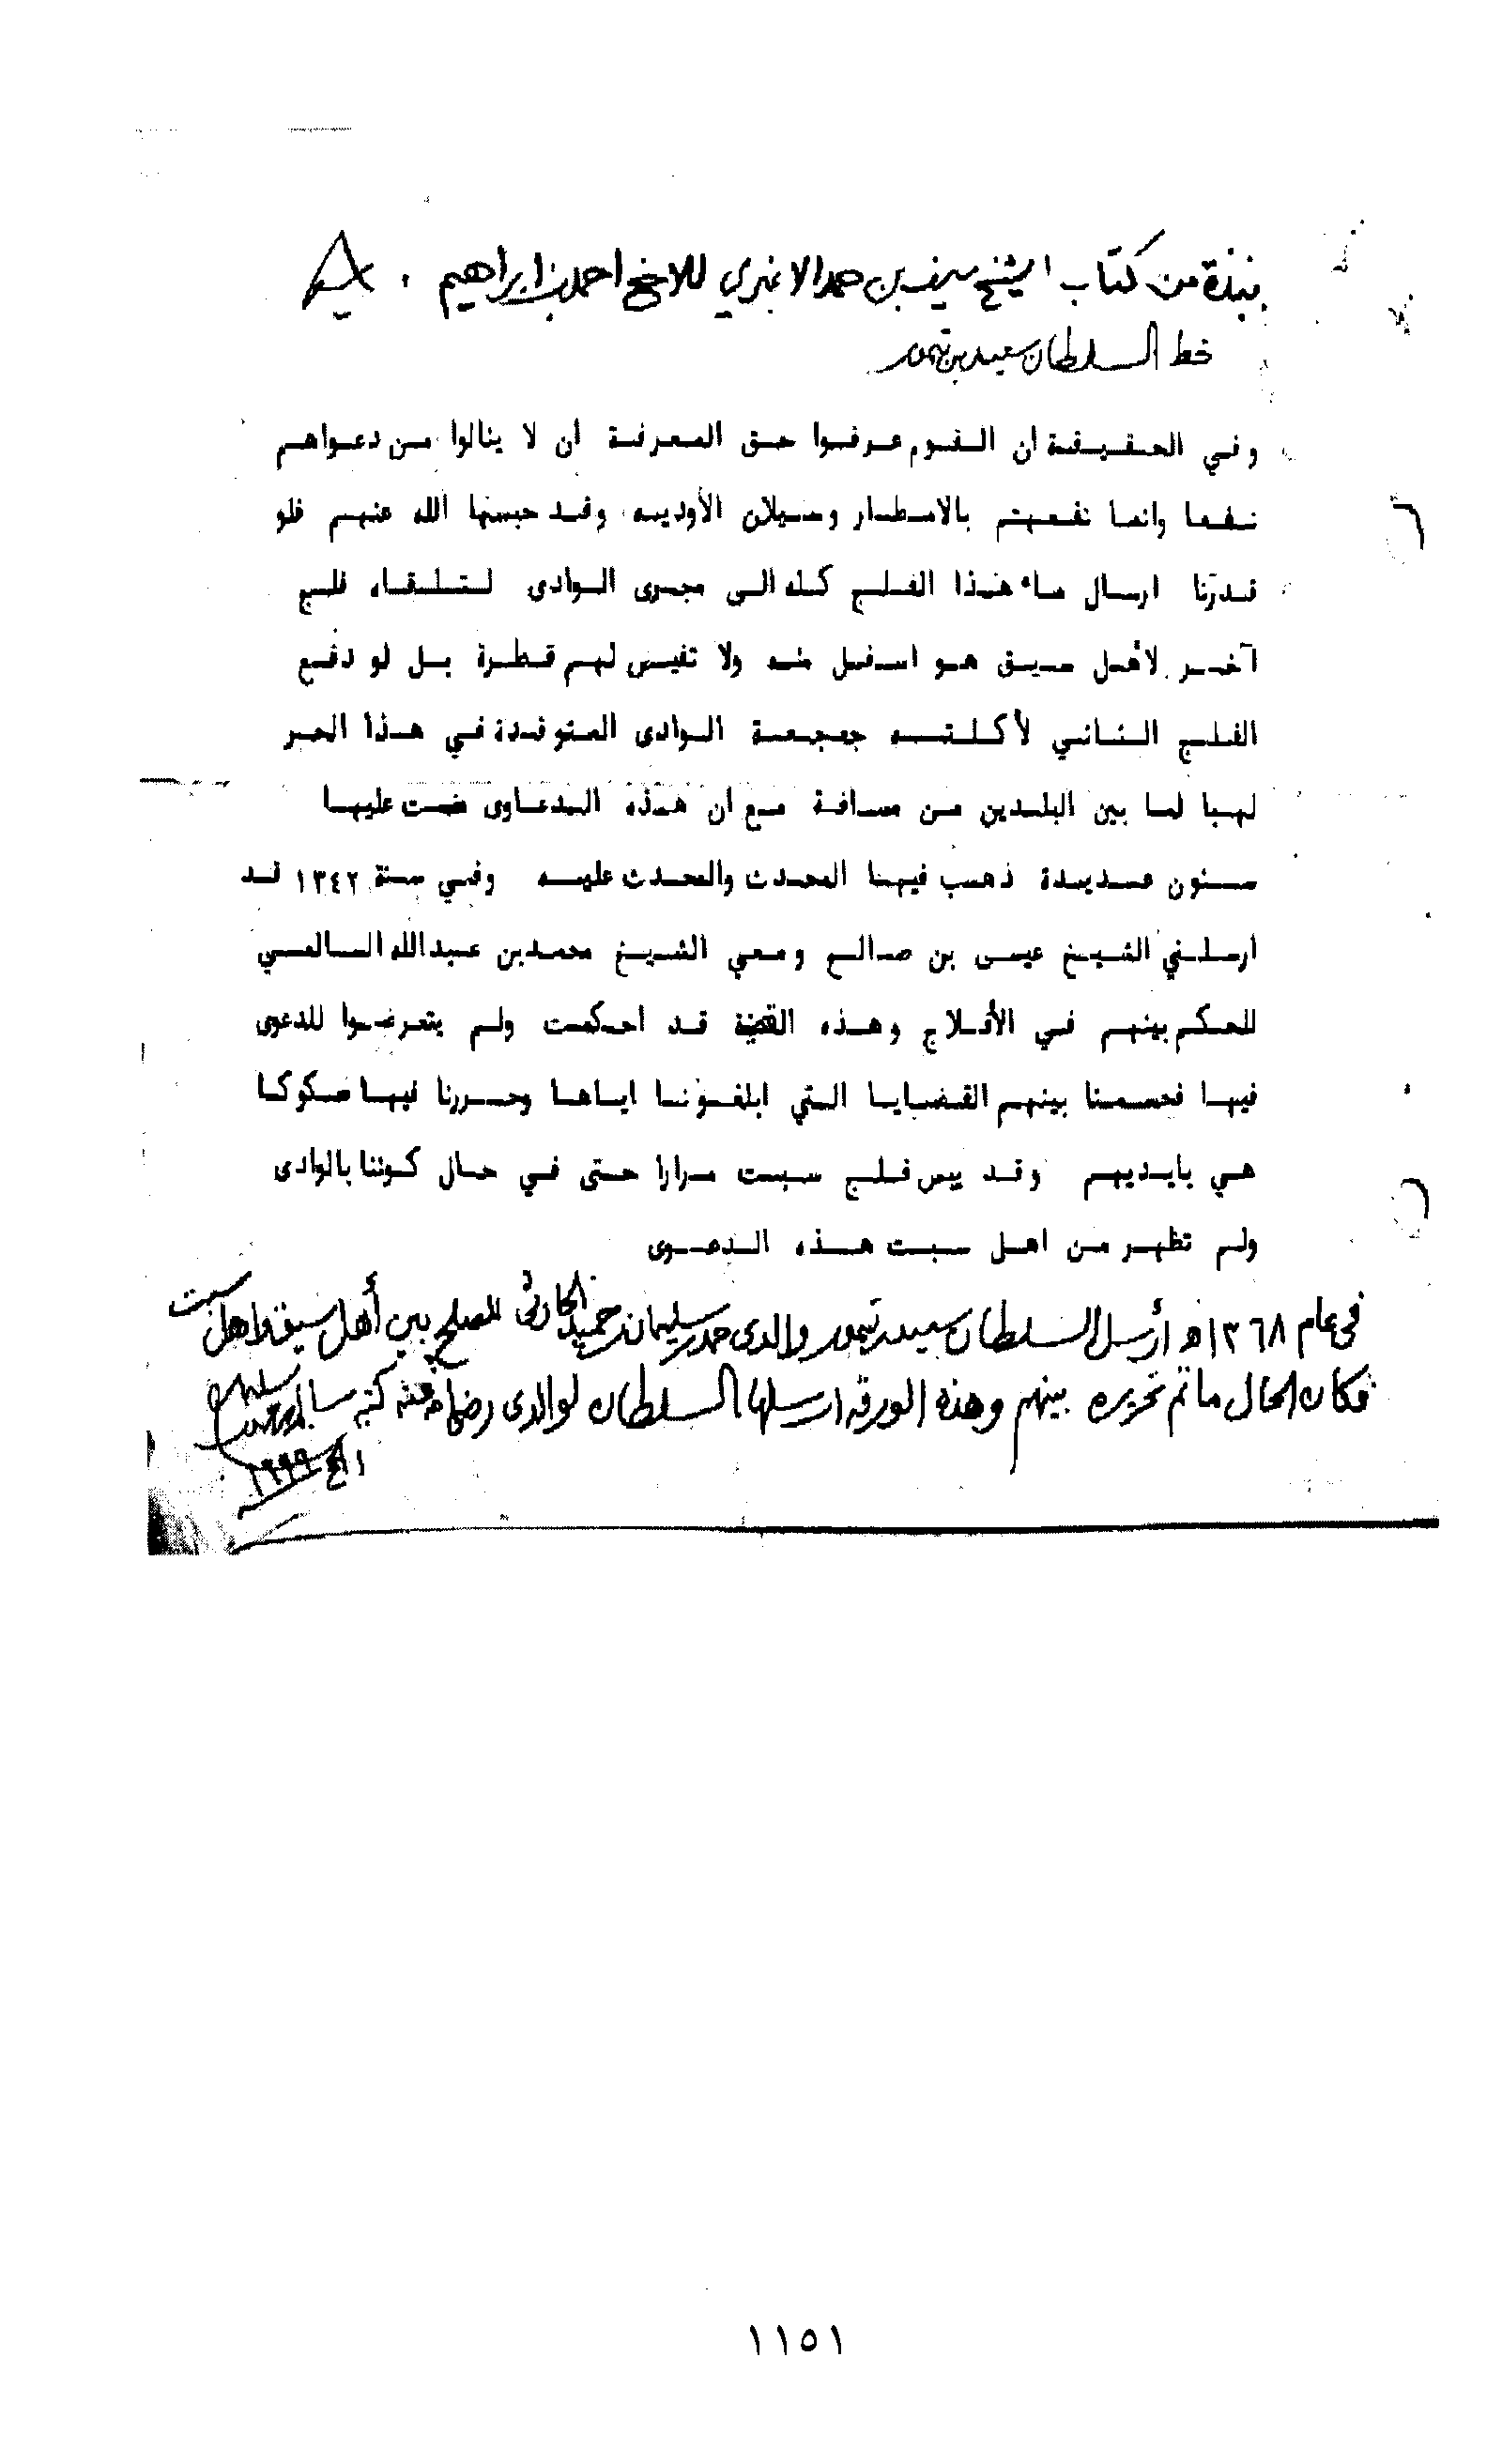 نبذة من كتاب الشيخ سيف بن حمد الاغبري للاخ احمد بن ابراهيم .
خط السلطان سعيد بن تيمور
وفي الحقيقة ان القوم عرفوا حق المعرفة ان لا ينالوا من دعواهم
نفعا وانما نفعهم بالامطار وسيلان الأوديه وقد حبسها الله عنهم فلو
قدرنا ارسال ماء هذا الفلج كله الى مجرى الوادى لتلقاه فلج
آخر لأهل سيق هو اسفل منه ولا تفيض لهم قطرة بل لو دفع
الفلج الثاني لأكلته جعجعة الوادى المتوقدة في هذا الحر
لهبا لما بين البلدين من مسافة مع ان هذه الدعاوى مضت عليها
سنون عديدة ذهب فيها المحدث والمحدث عليه وفي سنة ١٣٤٢ قد
أرسلني الشيخ عيسى بن صالح ومعي الشيخ محمد بن عبدالله السالمي
للحكم بينهم في الأفلاج وهذه القضية قد احكمت ولم يتعرضوا للدعوى
فيها فحسمنا بينهم القضايا التي ابلغونا اياها وحررنا فيها صكوكا
هي بايديهم وقد يبس فلج سبت مرارا حتى في حال كوننا بالوادى
ولم تظهر من اهل سبت هذه الدعوى
فى عام ١٣٦٨ه أرسل السلطان سعيد بن تيمور والدى حمد بن سليمان بن حميد الحارثى للصلح بين أهل سيق واهل سبت
فكان الحال ما تم تحريره بينهم وهذه الورقه ارسلها السلطان لوالدى رضي الله عنه كتبه سالم بن حمد بن سليمان
١٣٩٩
١١٥١